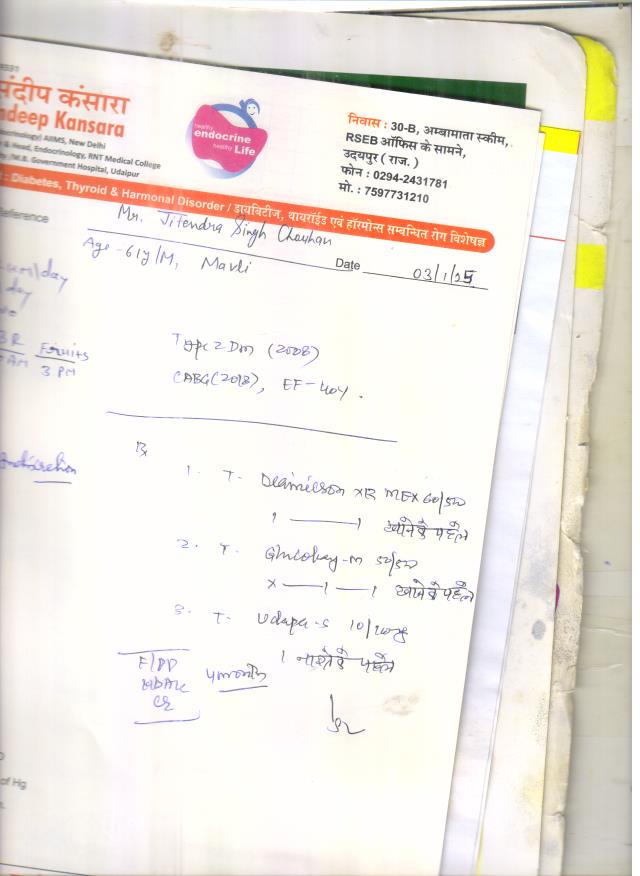 संदीप कंसारा
deep Kansara
ocrinology) AIIMS, New Delhi
& Head, Endocrinology, RNT Medical College
/M.B. Government Hospital, Udaipur
healthy
endocrine
healthy Life
निवास : 30-B, अम्बामाता स्कीम,
RSEB ऑफिस के सामने,
उदयपुर ( राज. )
फोन : 0294-2431781
मो. : 7597731210
: Diabetes, Thyroid & Harmonal Disorder / डायबिटीज, थायराईड एवं हॉरमोन्स सम्बन्धित रोग विशेषज्ञ
Reference
Mr. Jitendra Singh Chauhan
Age - 61y/M, Mavli
Date 03/1/25
/day
day
Fruits
AM 3 PM
Type 2 Dm (2008)
CABG (2018), EF - 40%.
Rx
1. T. XR MEX 60/500
1 — 1 खाने के पहले
2. T. Glucokay-M 50/500
x — 1 — 1 खाने के पहले
3. T. Udapa-S 10/100
1 नाश्ते के पहले
F/PP
HbA1c
Cr
4 month
of Hg